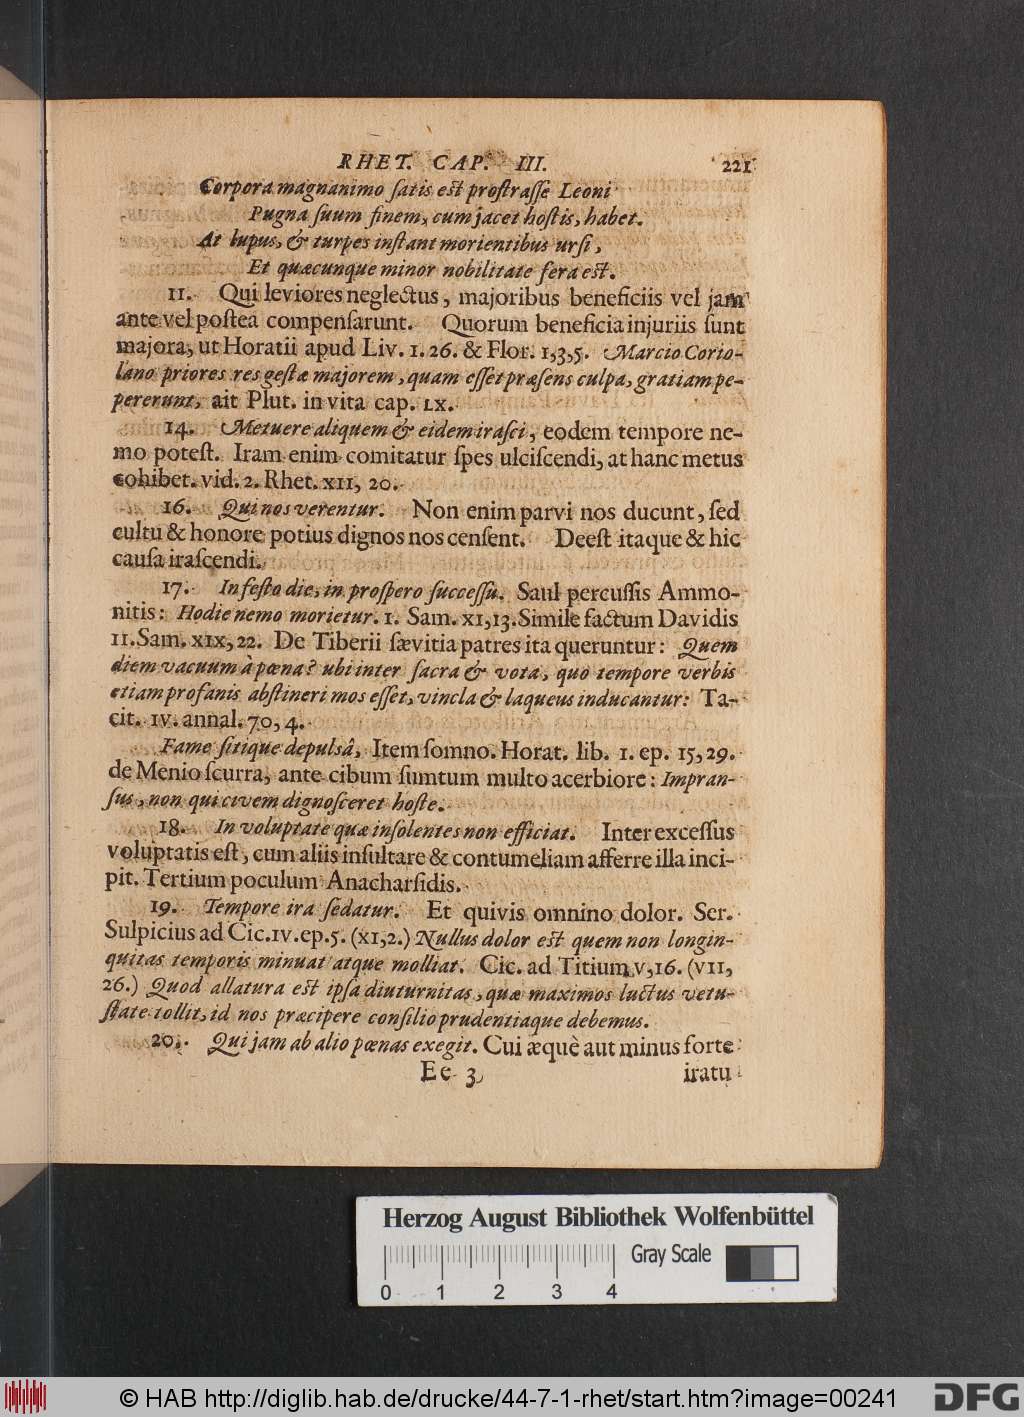 RHET. CAP. III. 221
Corpora magnanimo ſatis est proſtraſſe Leoni
Pugna ſuum finem, cum jacet hoſtis, habet.
At lupus, & turpes inſtant morientibus urſi,
Et quæcunque minor nobilitate fera est.
11. Qui leviores neglectus, majoribus beneficiis vel jam
ante vel poſtea compenſarunt. Quorum beneficia injuriis ſunt
majora, ut Horatii apud Liv. 1. 26. & Flor. 1,3,5. Marcio Corio-
lano priores res geſtæ majorem, quam eſſet præſens culpa, gratiam pe-
pererunt, ait Plut. in vita cap. LX.
14. Metuere aliquem & eidem iraſci, eodem tempore ne-
mo poteſt. Iram enim comitatur ſpes ulciſcendi, at hanc metus
cohibet. vid. 2. Rhet. XII, 20.
16. Qui nos verentur. Non enim parvi nos ducunt, ſed
cultu & honore potius dignos nos cenſent. Deeſt itaque & hic
cauſa iraſcendi.
17. In feſto die, in proſpero ſucceſſu. Saul percuſſis Ammo-
nitis: Hodie nemo morietur. 1. Sam. XI,13. Simile factum Davidis
II. Sam. XIX, 22. De Tiberii ſævitia patres ita queruntur: Quem
diem vacuum à pœna? ubi inter ſacra & vota, quo tempore verbis
etiam profanis abſtineri mos eſſet, vincla & laqueus inducantur: Ta-
cit. IV. annal. 70, 4.
Fame ſitique depulsâ, Item ſomno. Horat. lib. 1. ep. 15, 29.
de Menio ſcurra, ante cibum ſumtum multo acerbiore: Impran-
ſus, non qui civem dignoſceret hoſte.
18. In voluptate quæ inſolentes non efficiat. Inter exceſſus
voluptatis eſt, cum aliis inſultare & contumeliam afferre illa inci-
pit. Tertium poculum Anacharſidis.
19. Tempore ira ſedatur. Et quivis omnino dolor. Ser.
Sulpicius ad Cic. IV. ep. 5. (XI, 2.) Nullus dolor est quem non longin-
quitas temporis minuat atque molliat. Cic. ad Titium V, 16. (VII,
26.) Quod allatura est ipſa diuturnitas, quæ maximos luctus vetu-
ſtate tollit, id nos præcipere conſilio prudentiaque debemus.
20. Qui jam ab alio pœnas exegit. Cui æquè aut minus forte
Ee 3 iratu
Herzog August Bibliothek Wolfenbüttel
Gray Scale
0 1 2 3 4
© HAB http://diglib.hab.de/drucke/44-7-1-rhet/start.htm?image=00241
DFG